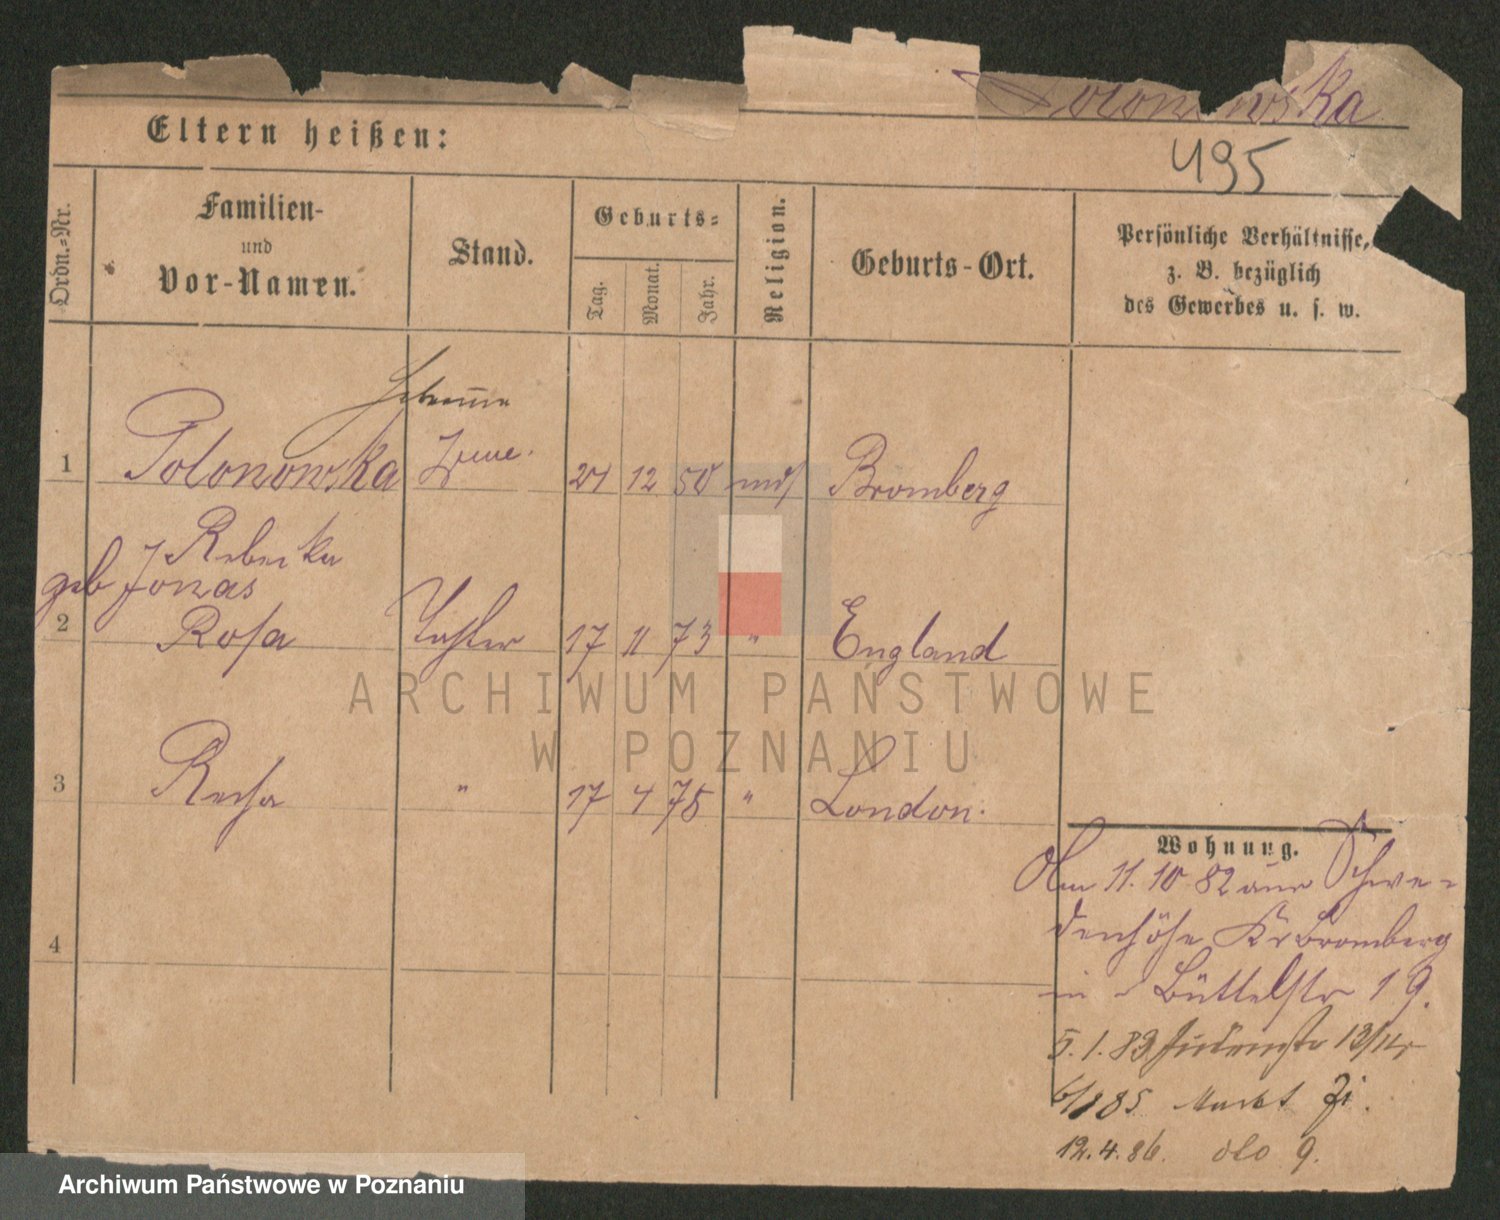 Polonowska
495
Eltern heißen:
Ordn.-Nr.
Familien-
und
Vor-Namen.
Stand.
Geburts-
Tag.
Monat.
Jahr.
Religion.
Geburts-Ort.
Persönliche Verhältnisse,
z. B. bezüglich
des Gewerbes u. s. w.
1 Polonowska 24 12 50 Bromberg
Rebecka
geb Jonas
2 Rosa Tochter 17 11 73 " England
3 Recha " 17 4 75 " London.
4
Wohnung.
Am 11. 10 82 aus Schwe-
denhöhe Kr Bromberg
in Büttelstr 19.
5. 1. 83 Judenstr 13/14
85 Markt
12. 4. 86. dto 9.
ARCHIWUM PAŃSTWOWE
W POZNANIU
Archiwum Państwowe w Poznaniu